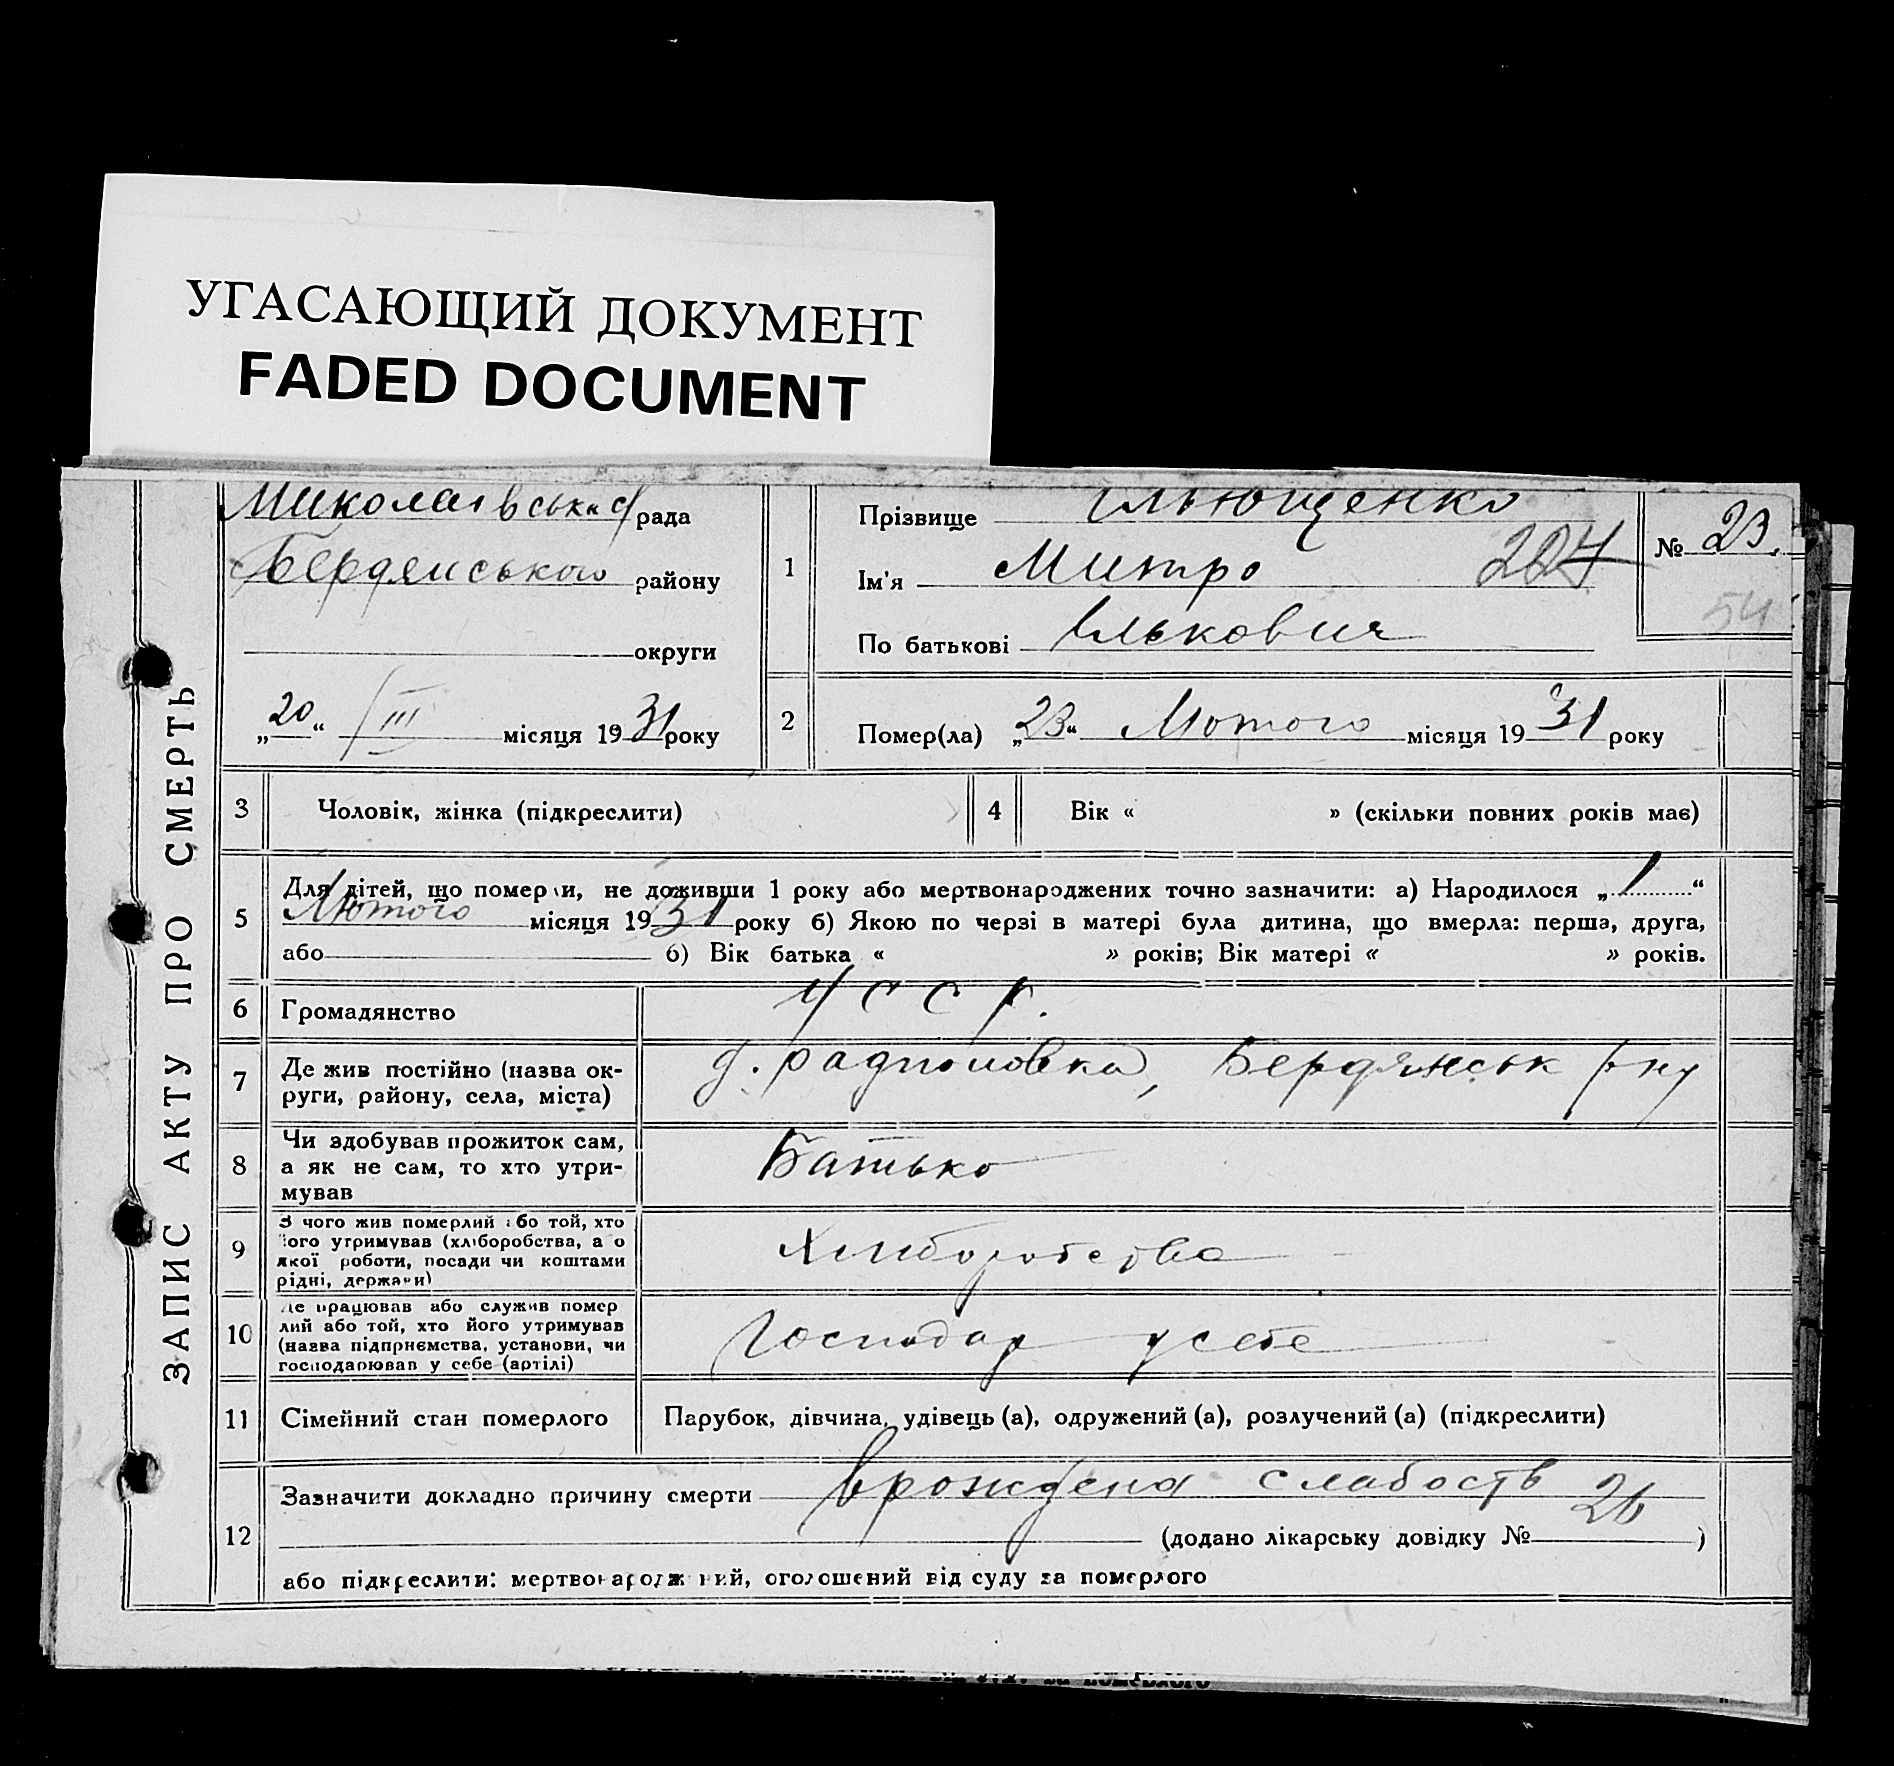 УГАСАЮЩИЙ ДОКУМЕНТ
FADED DOCUMENT
ЗАПИС АКТУ ПРО СМЕРТЬ
Миколаївська с/рада
Бердянського району
округи
„20“ III місяця 1931 року
1
Прізвище Ільющенко
Ім'я Митро
204
По батькові Ількович
№ 23.
54
2
Помер(ла) „23“ Лютого місяця 1931 року
3 Чоловік, жінка (підкреслити)
4 Вік « » (скільки повних років має)
5
Для дітей, що померли, не доживши 1 року або мертвонароджених точно зазначити: а) Народилося „1“
Лютого місяця 1931 року б) Якою по черзі в матері була дитина, що вмерла: перша, друга,
або б) Вік батька « » років; Вік матері « » років.
6 Громадянство УССР.
7
Де жив постійно (назва ок-
руги, району, села, міста)
Бердянськ р-ну
8
Чи здобував прожиток сам,
а як не сам, то хто утри-
мував
Батько
9
З чого жив померлий або той, хто
його утримував (хліборобства, а о
якої роботи, посади чи коштами
рідні, держави)
Хліборобства
10
Де працював або служив помер
лий або той, хто його утримував
(назва підприємства, установи, чи
господарював у себе (артілі)
Господар у себе
11 Сімейний стан померлого Парубок, дівчина, удівець (а), одружений (а), розлучений (а) (підкреслити)
12
Зазначити докладно причину смерти врождена слабость
26
(додано лікарську довідку № )
або підкреслити: мертвонароджений, оголошений від суду за померлого